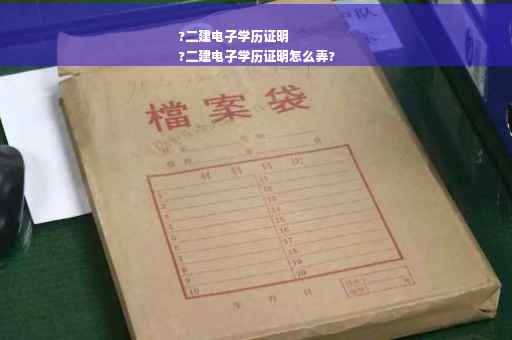 ?二建电子学历证明
?二建电子学历证明怎么弄?
檔案袋
材料目次
1
2
3
4
5
6
7
8
9
10
11
12
13
14
15
16
17
18
19
20
年 月 日